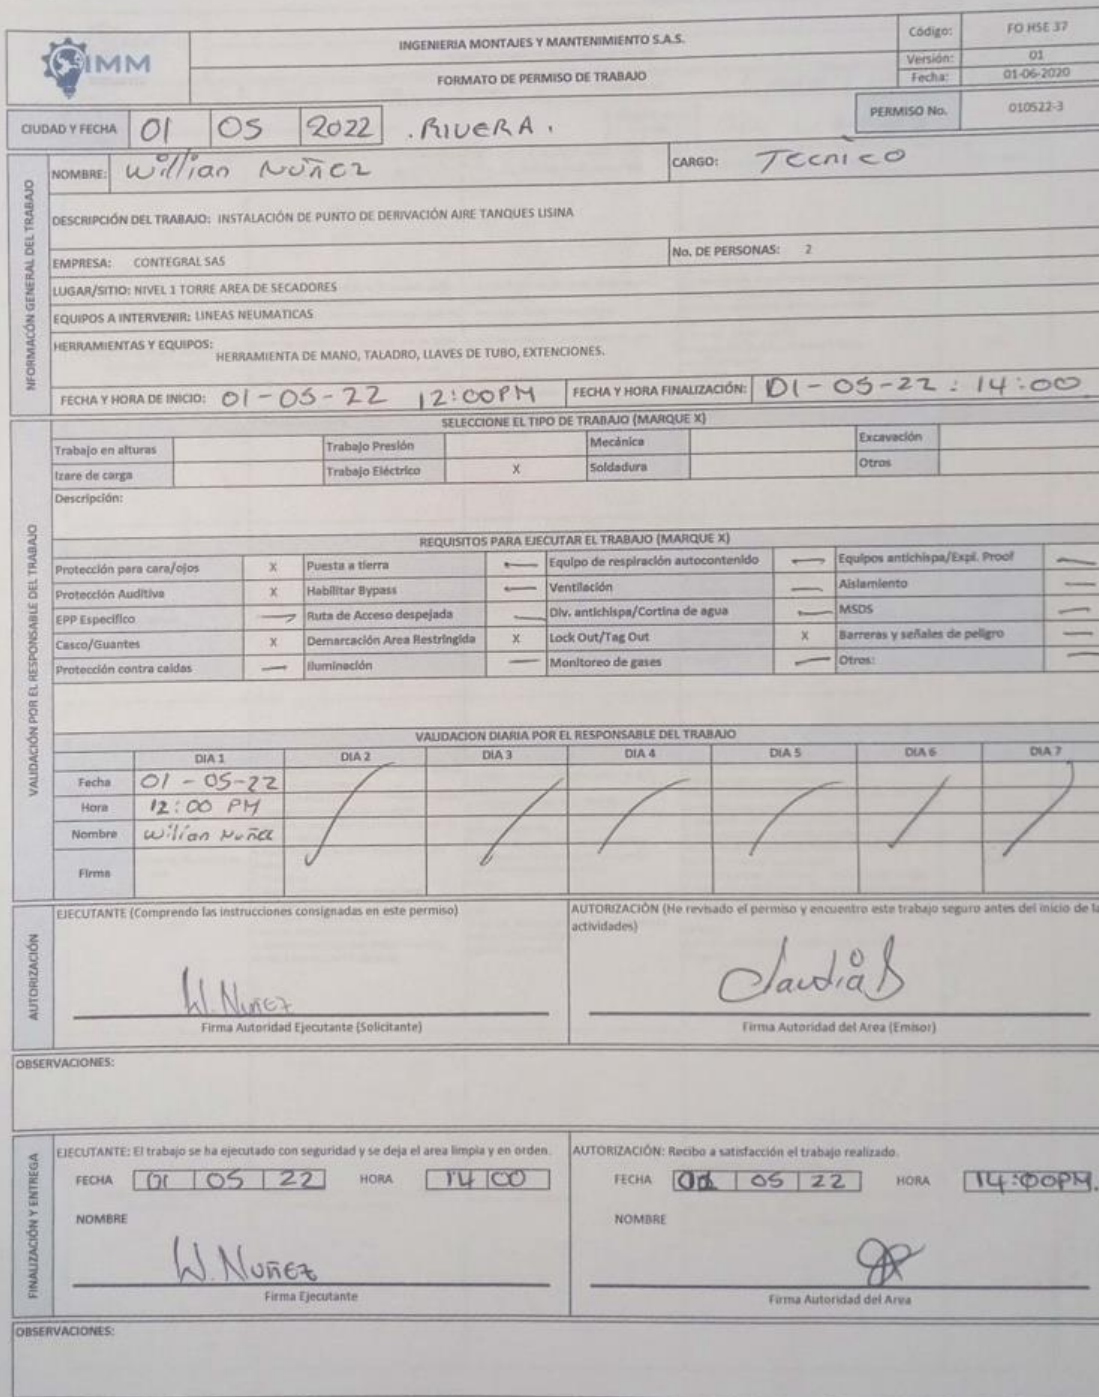 IMM
INGENIERIA MONTAJES Y MANTENIMIENTO S.A.S.
FORMATO DE PERMISO DE TRABAJO
Código: FO HSE 37
Versión: 01
Fecha: 01-06-2020
CIUDAD Y FECHA 01 05 2022 . RIVERA .
PERMISO No. 010522-3
NFORMACÓN GENERAL DEL TRABAJO
NOMBRE: Willian Nuñez CARGO: Tecnico
DESCRIPCIÓN DEL TRABAJO: INSTALACIÓN DE PUNTO DE DERIVACIÓN AIRE TANQUES LISINA
EMPRESA: CONTEGRAL SAS No. DE PERSONAS: 2
LUGAR/SITIO: NIVEL 1 TORRE AREA DE SECADORES
EQUIPOS A INTERVENIR: LINEAS NEUMATICAS
HERRAMIENTAS Y EQUIPOS: HERRAMIENTA DE MANO, TALADRO, LLAVES DE TUBO, EXTENCIONES.
FECHA Y HORA DE INICIO: 01-05-22 12:00PM FECHA Y HORA FINALIZACIÓN: 01-05-22 : 14:00
VALIDACIÓN POR EL RESPONSABLE DEL TRABAJO
SELECCIONE EL TIPO DE TRABAJO (MARQUE X)
Trabajo en alturas Trabajo Presión Mecánica Excavación
Izare de carga Trabajo Eléctrico X Soldadura Otros
Descripción:
REQUISITOS PARA EJECUTAR EL TRABAJO (MARQUE X)
Protección para cara/ojos X Puesta a tierra — Equipo de respiración autocontenido — Equipos antichispa/Expl. Proof —
Protección Auditiva X Habilitar Bypass — Ventilación — Aislamiento —
EPP Especifico — Ruta de Acceso despejada — Div. antichispa/Cortina de agua — MSDS —
Casco/Guantes X Demarcación Area Restringida X Lock Out/Tag Out X Barreras y señales de peligro —
Protección contra caídas — Iluminación — Monitoreo de gases — Otros: —
VALIDACION DIARIA POR EL RESPONSABLE DEL TRABAJO
DIA 1 DIA 2 DIA 3 DIA 4 DIA 5 DIA 6 DIA 7
Fecha 01-05-22
Hora 12:00 PM
Nombre Wilian Nuñez
Firma
AUTORIZACIÓN
EJECUTANTE (Comprendo las instrucciones consignadas en este permiso)
W. Nuñez
Firma Autoridad Ejecutante (Solicitante)
AUTORIZACIÓN (He revisado el permiso y encuentro este trabajo seguro antes del inicio de la
actividades)
Claudia
Firma Autoridad del Area (Emisor)
OBSERVACIONES:
FINALIZACIÓN Y ENTREGA
EJECUTANTE: El trabajo se ha ejecutado con seguridad y se deja el area limpia y en orden.
FECHA 01 05 22 HORA 14 00
NOMBRE
W. Nuñez
Firma Ejecutante
AUTORIZACIÓN: Recibo a satisfacción el trabajo realizado.
FECHA 01 05 22 HORA 14:00PM.
NOMBRE
Firma Autoridad del Area
OBSERVACIONES: